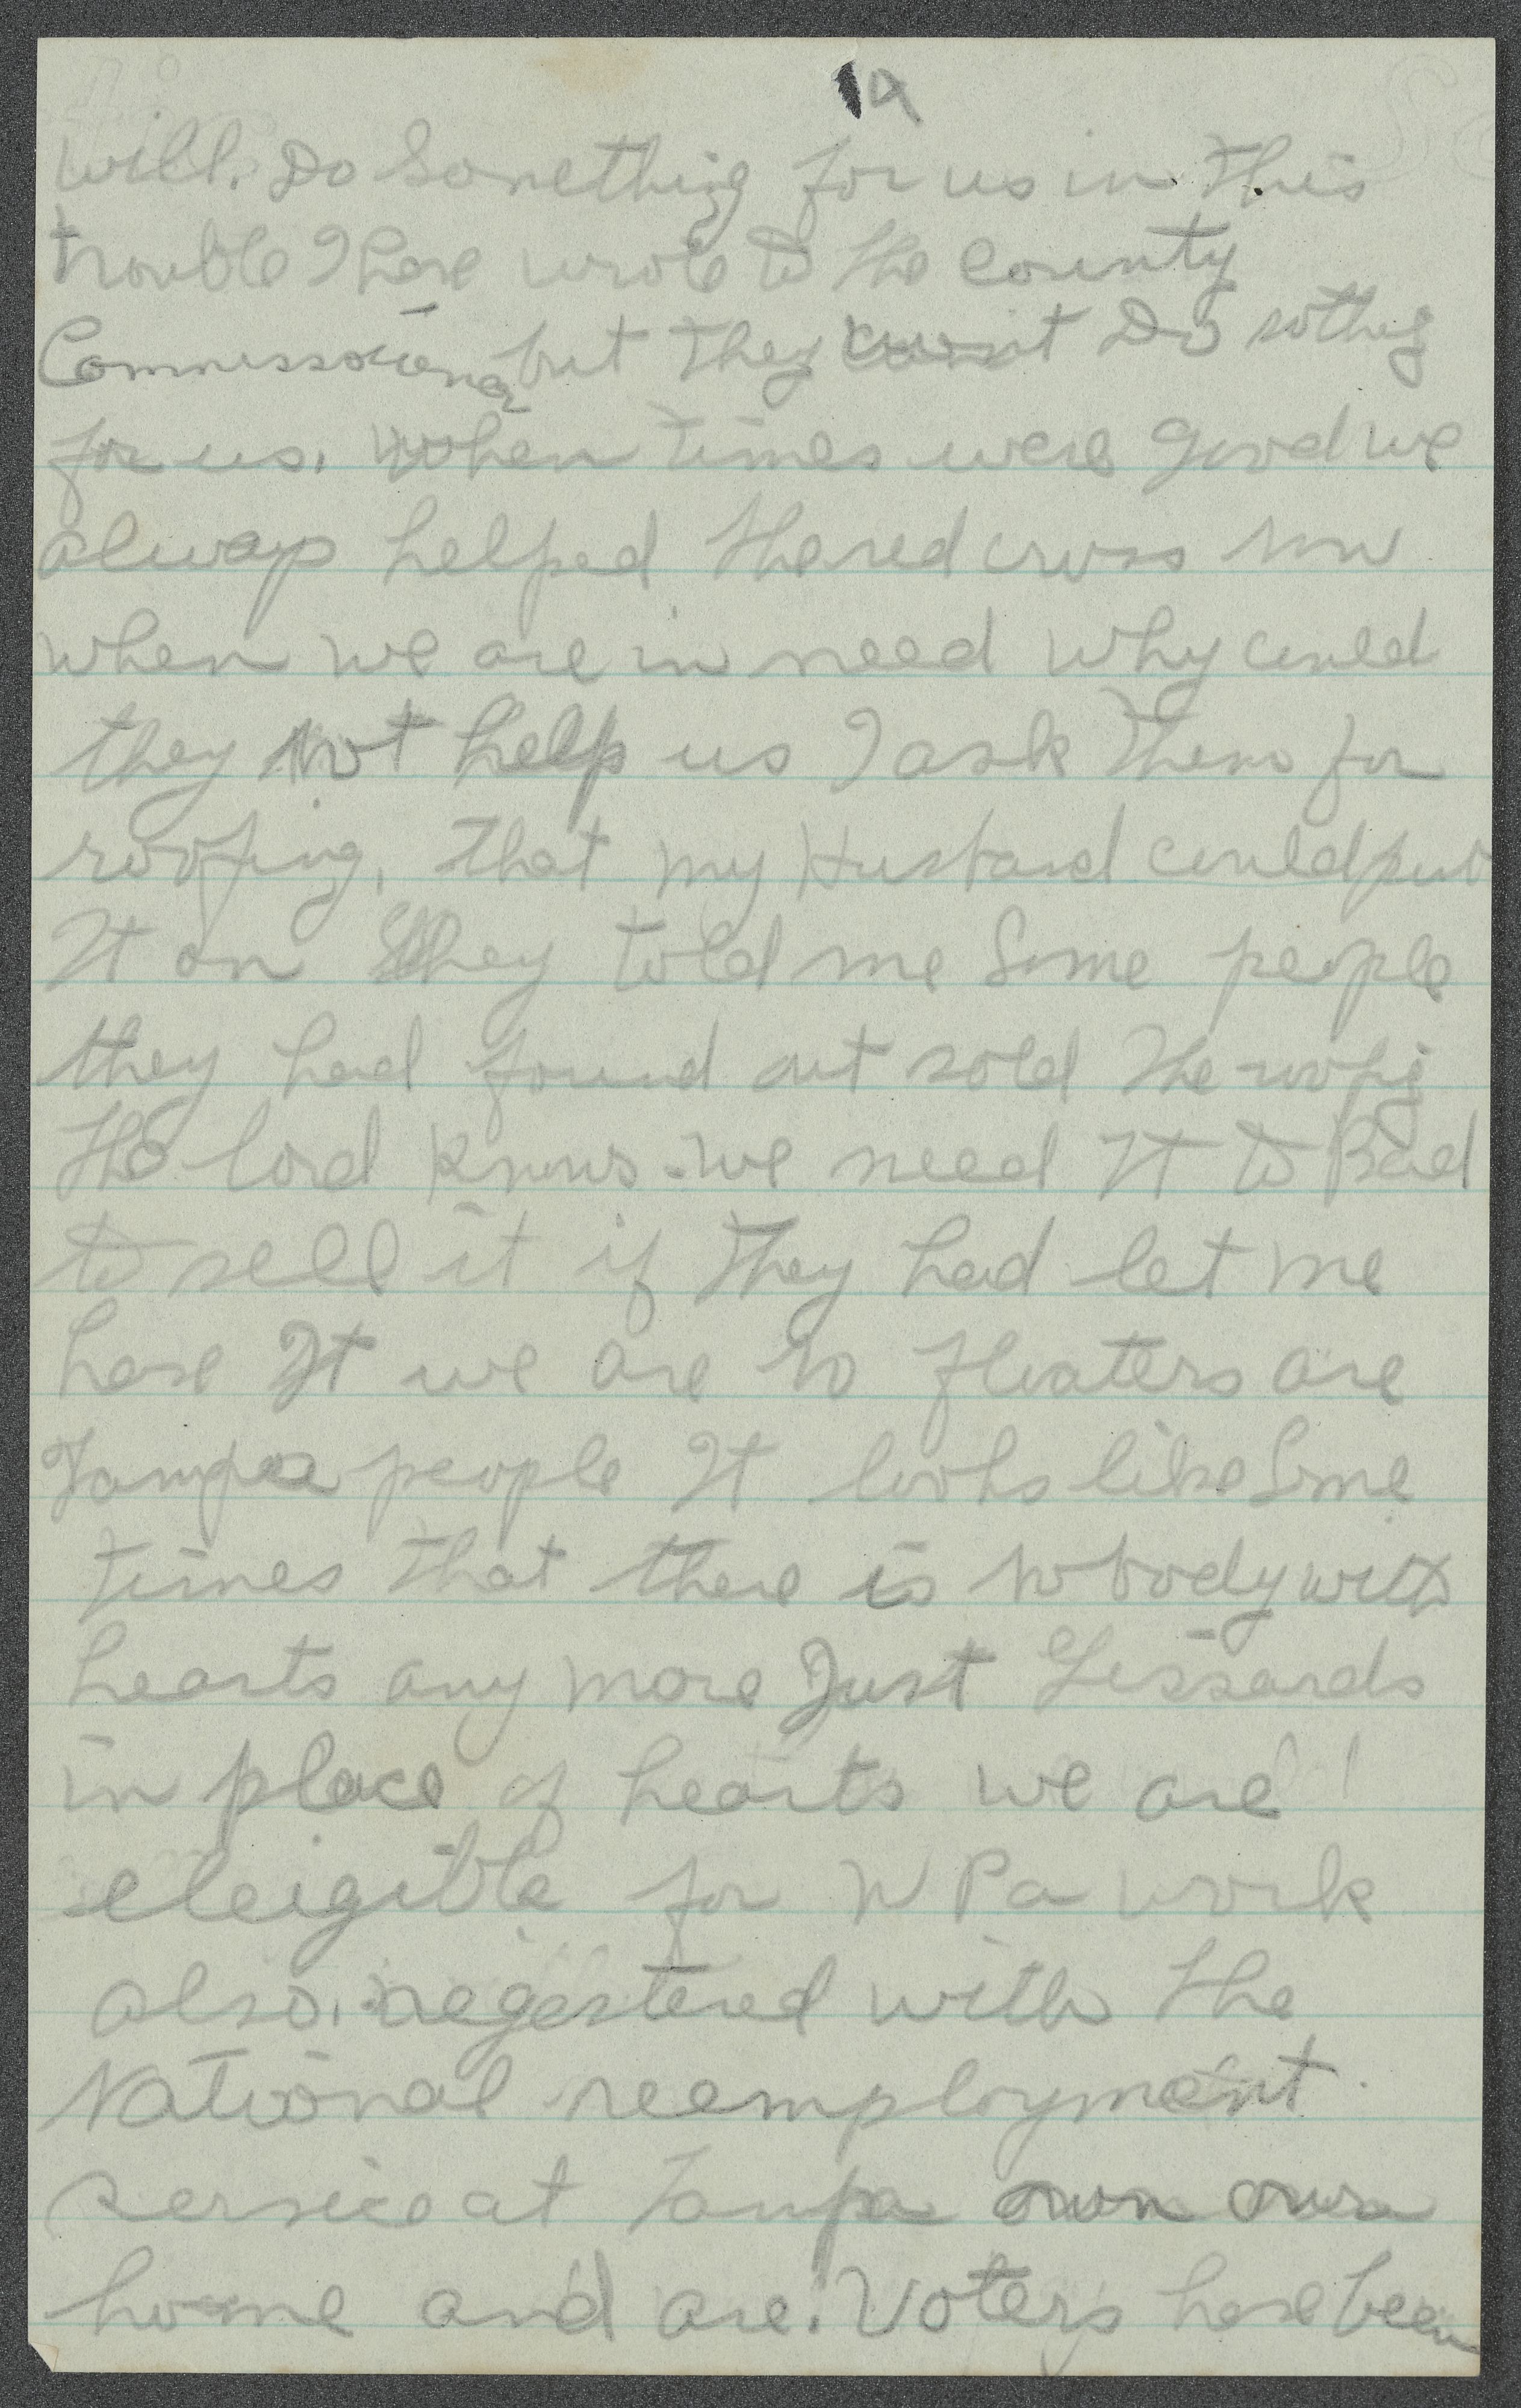 will. Do Something for us in this
trouble I have wrote to the County
Commissoiens but they Do nothig
for us. When times were good we
always helped the red cross now
when we are in need why could
they not help us I ask them for
roofing, that my Husband could put
It on they told me Some people
they had found out sold the roofig
the lord knows - we need It to Bad
to sell it if they had let me
have It we are no floaters are
Tampa people It looks like Some
times that there is nobody with
hearts any more Just Gissards
in place of hearts we are
eleigible for W Pa work
also. regestered with the
National reemployment
service at Tampa own own
home and are. Voters have been